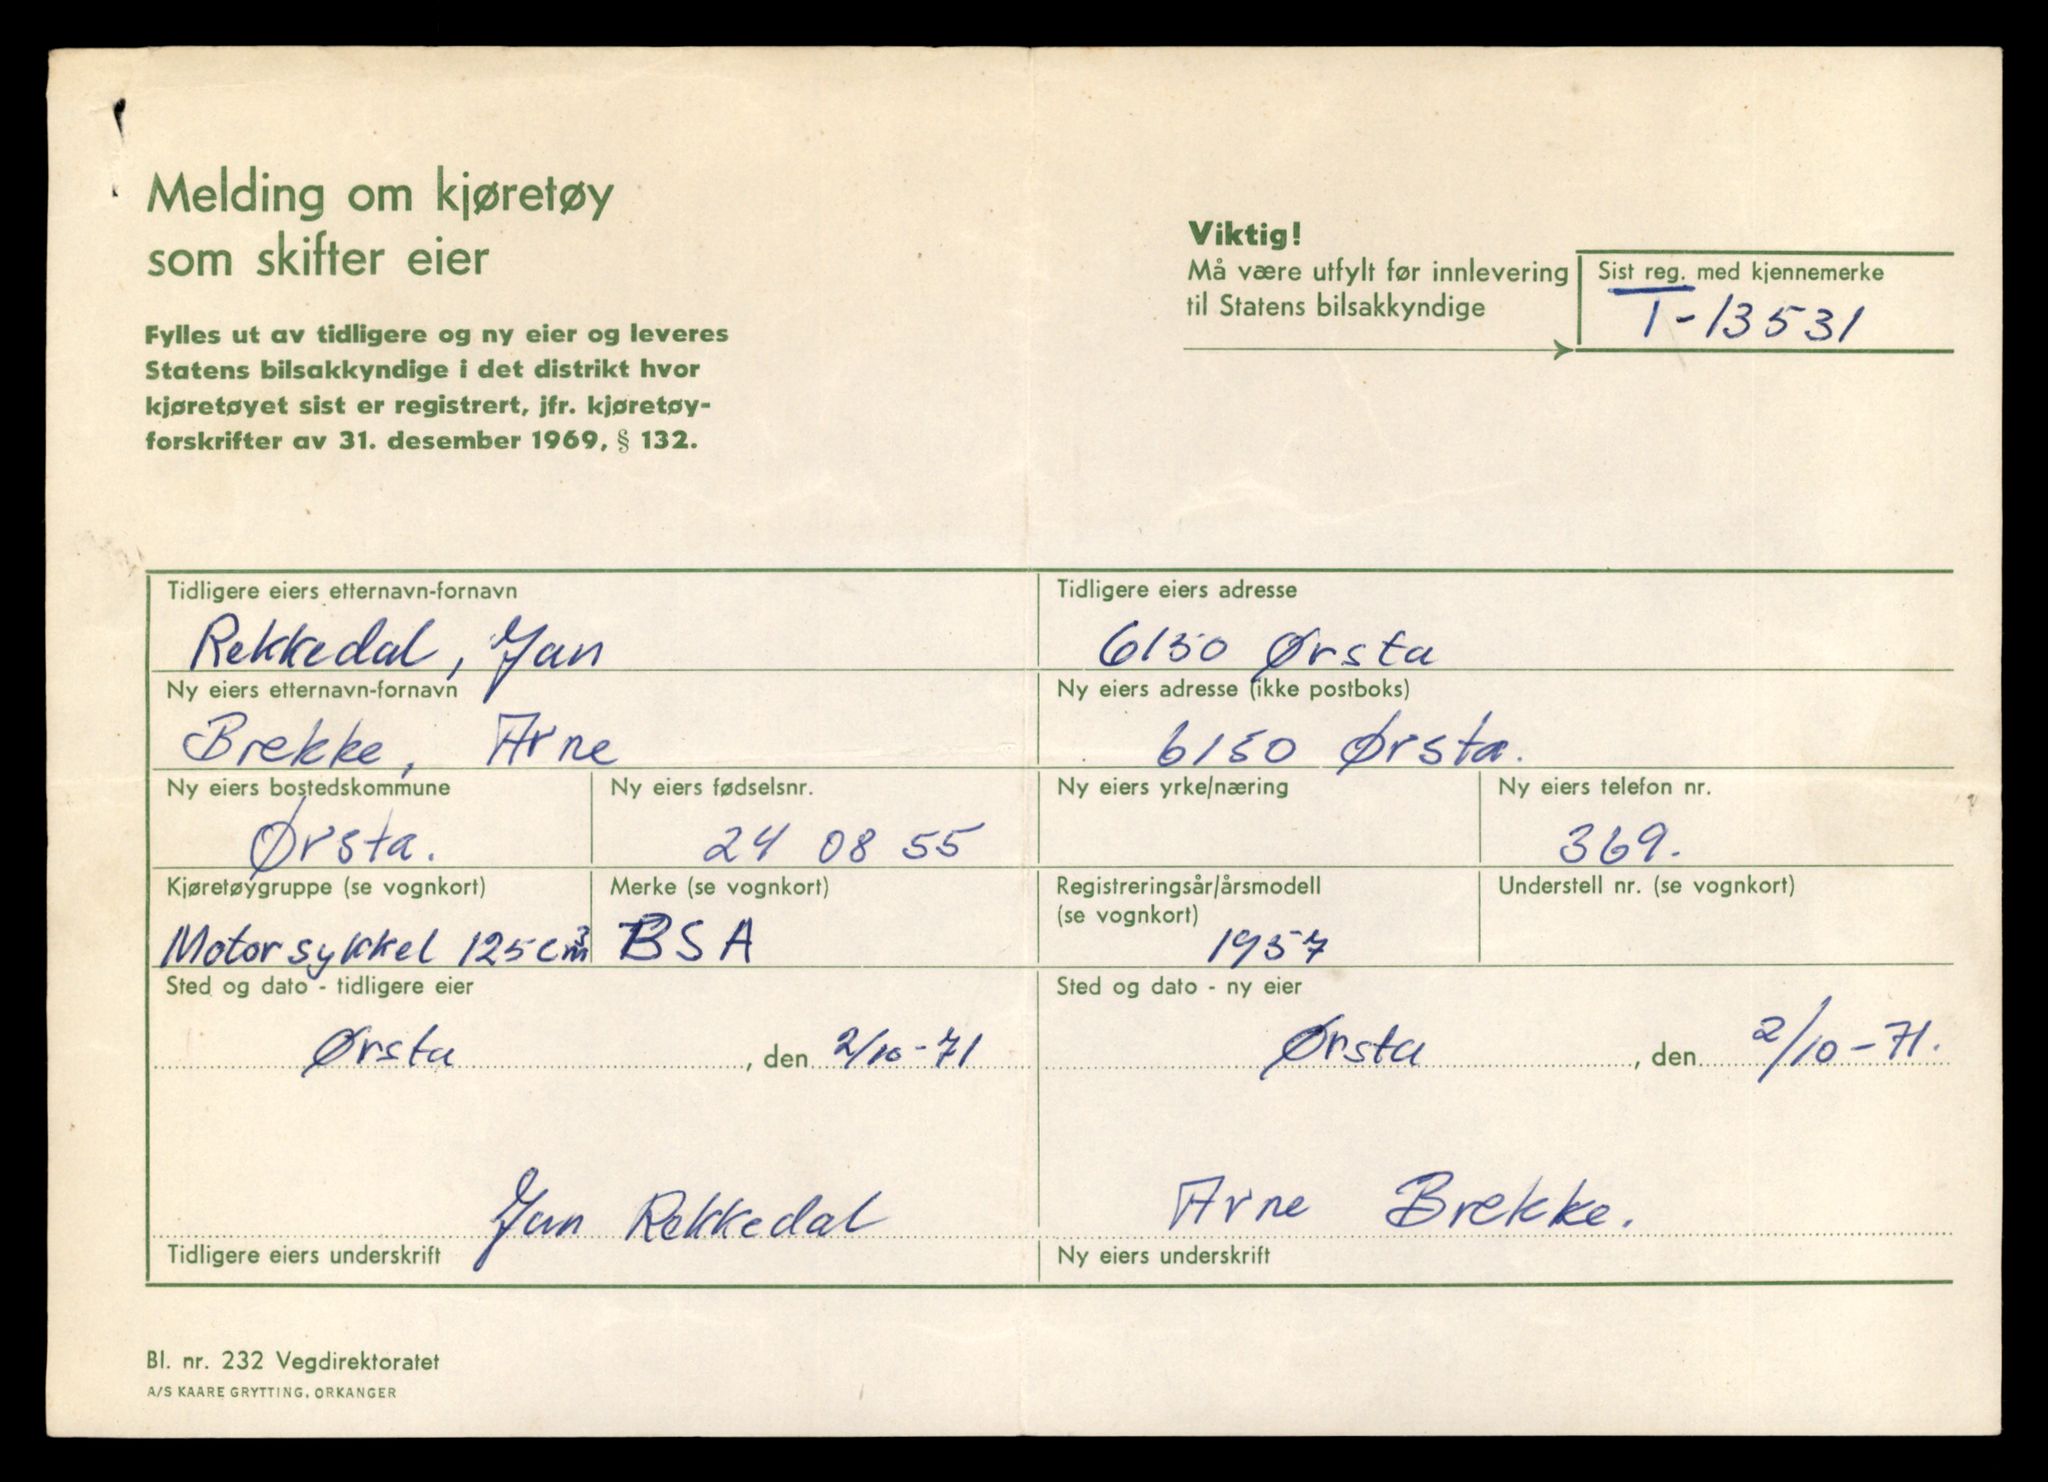 Melding om kjøretøy
som skifter eier
Fylles ut av tidligere og ny eier og leveres
Statens bilsakkyndige i det distrikt hvor
kjøretøyet sist er registrert, jfr. kjøretøy-
forskrifter av 31. desember 1969, § 132.
Viktig!
Må være utfylt før innlevering
til Statens bilsakkyndige
Sist reg. med kjennemerke
T-13531
Tidligere eiers etternavn-fornavn
Rekkedal, Jan
Tidligere eiers adresse
6150 Ørsta
Ny eiers etternavn-fornavn
Brekke, Arne
Ny eiers adresse (ikke postboks)
6150 Ørsta.
Ny eiers bostedskommune
Ørsta.
Ny eiers fødselsnr.
24 08 55
Ny eiers yrke/næring
Ny eiers telefon nr.
369.
Kjøretøygruppe (se vognkort)
Motorsykkel 125 cm³
Merke (se vognkort)
BSA
Registreringsår/årsmodell
(se vognkort)
1957
Understell nr. (se vognkort)
Sted og dato - tidligere eier
Ørsta, den 2/10-71
Sted og dato - ny eier
Ørsta, den 2/10-71.
Jan Rekkedal
Tidligere eiers underskrift
Arne Brekke.
Ny eiers underskrift
Bl. nr. 232 Vegdirektoratet
A/S KAARE GRYTTING, ORKANGER